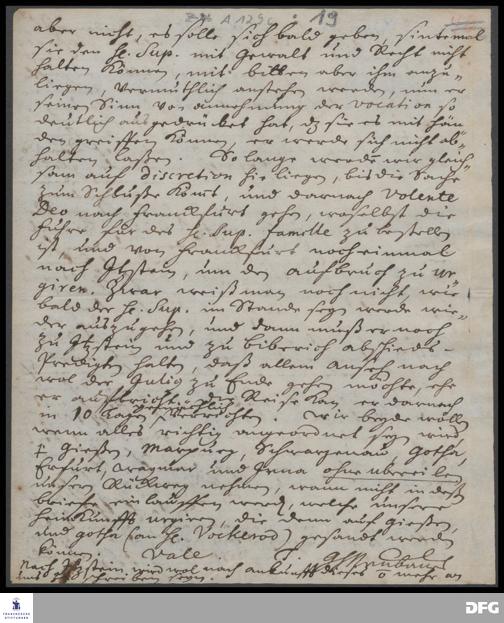 A 129 : 19
aber nicht, es solle sich bald geben, sintemal
sie den H. Sup. mit Gewalt und Recht nicht
halten können, mit bitten aber ihm anzu-
liegen, vermuthlich anstehen werden, nun er
seinen Sinn von annehmung der vocation so
deutlich ausgedrücket hat, dz sie es mit hän-
den greiffen können, er werde sich nicht ab-
halten laßen. So lange werden wir gleich-
sam auf discretion hie liegen, bis die Sache
zum Schluße komt, und darnach volente
Deo nach Franckfurt gehn, woselbst die
Fuhre für des H. Sup. famelle zu bestellen
ist und von Franckfurt noch einmal
nach Itzstein, um den aufbruch zu ur-
giren. Zwar weiß man noch nicht, wie
bald der H. Sup. im Stande seyn werde wie-
der auszugehn, und dann muß er noch
zu Itzstein und zu biberich abschieds-
Predigten halten, daß allem ansehn nach
wol der Julius zu Ende gehen möchte, ehe
er aufbricht. Die Reise kan er darnach
in 10 Tagen gemächlich verrichten. Wir beyde wollen
wenn alles richtig angeordnet seyn wird
Gießen, Marpurg, Schwarzenau, Gotha,
Erfurt, und Jena ohne übereilen
unsern Rückweg nehmen, wann nicht indeß
briefe einlauffen werden, welche unsere
heimkunfft urgiren, die denn auf Gießen,
und gotha (an H. Vockerod) gesandt werden
können. Vale. G. H. Neubauer
Nach Itzstein wird wol nach ankunfft dieses o mehr an
uns zu schreiben seyn.
FRANCKESCHE
STIFTUNGEN
DFG